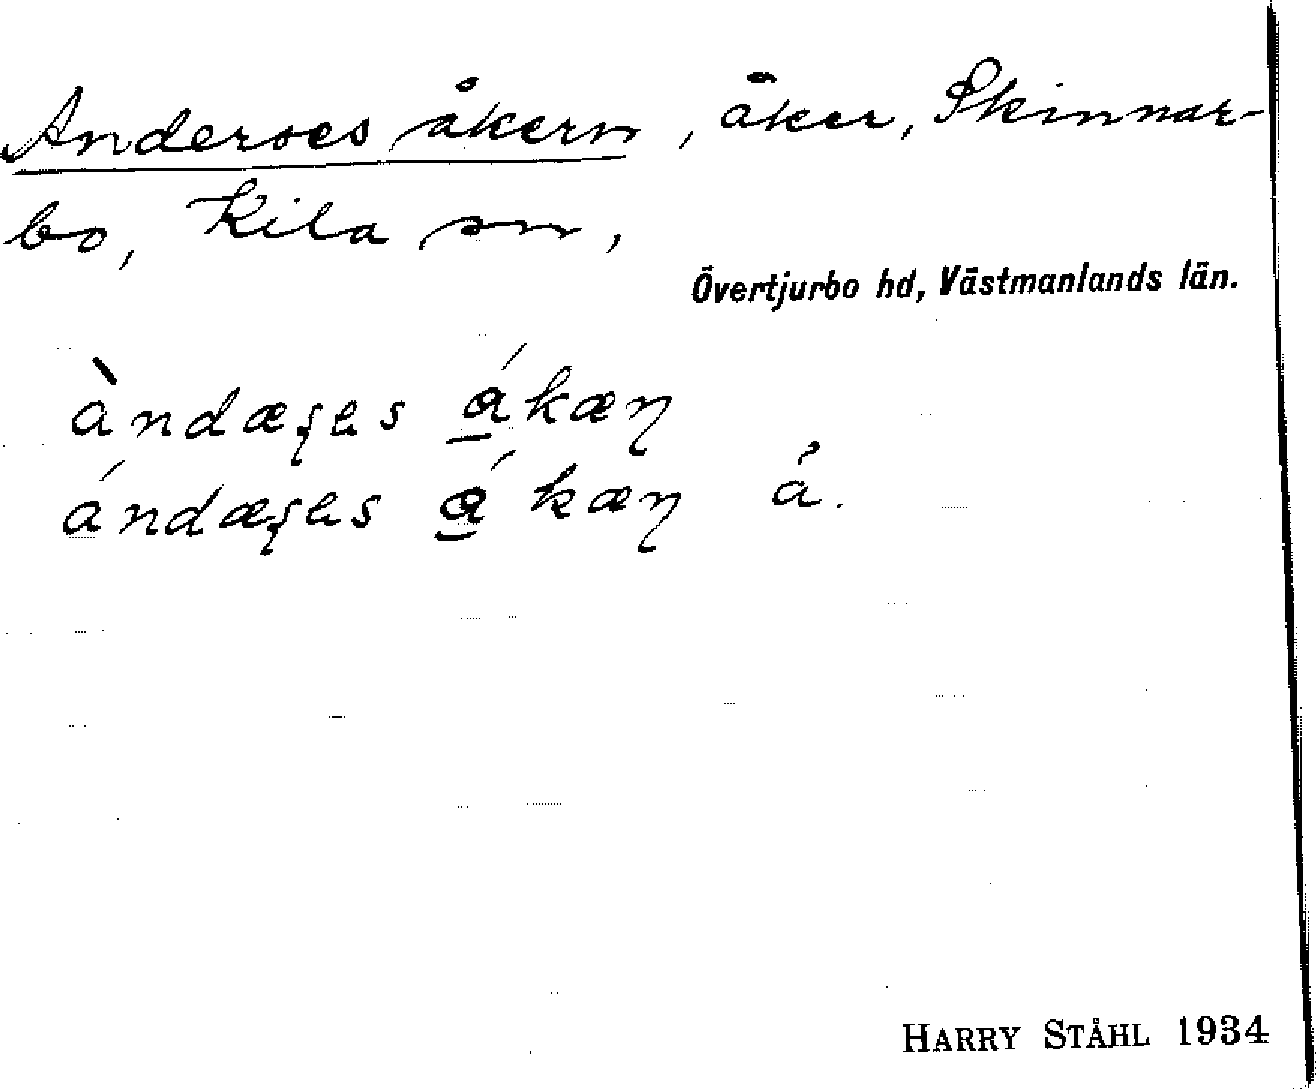 Anderses åkern, åker, Skinnar-
bo, Kila sn,
Övertjurbo hd, Västmanlands län.
àndæʂɛs ákæɳ
ándæʂɛs ákæɳ å.
HARRY STÅHL 1934